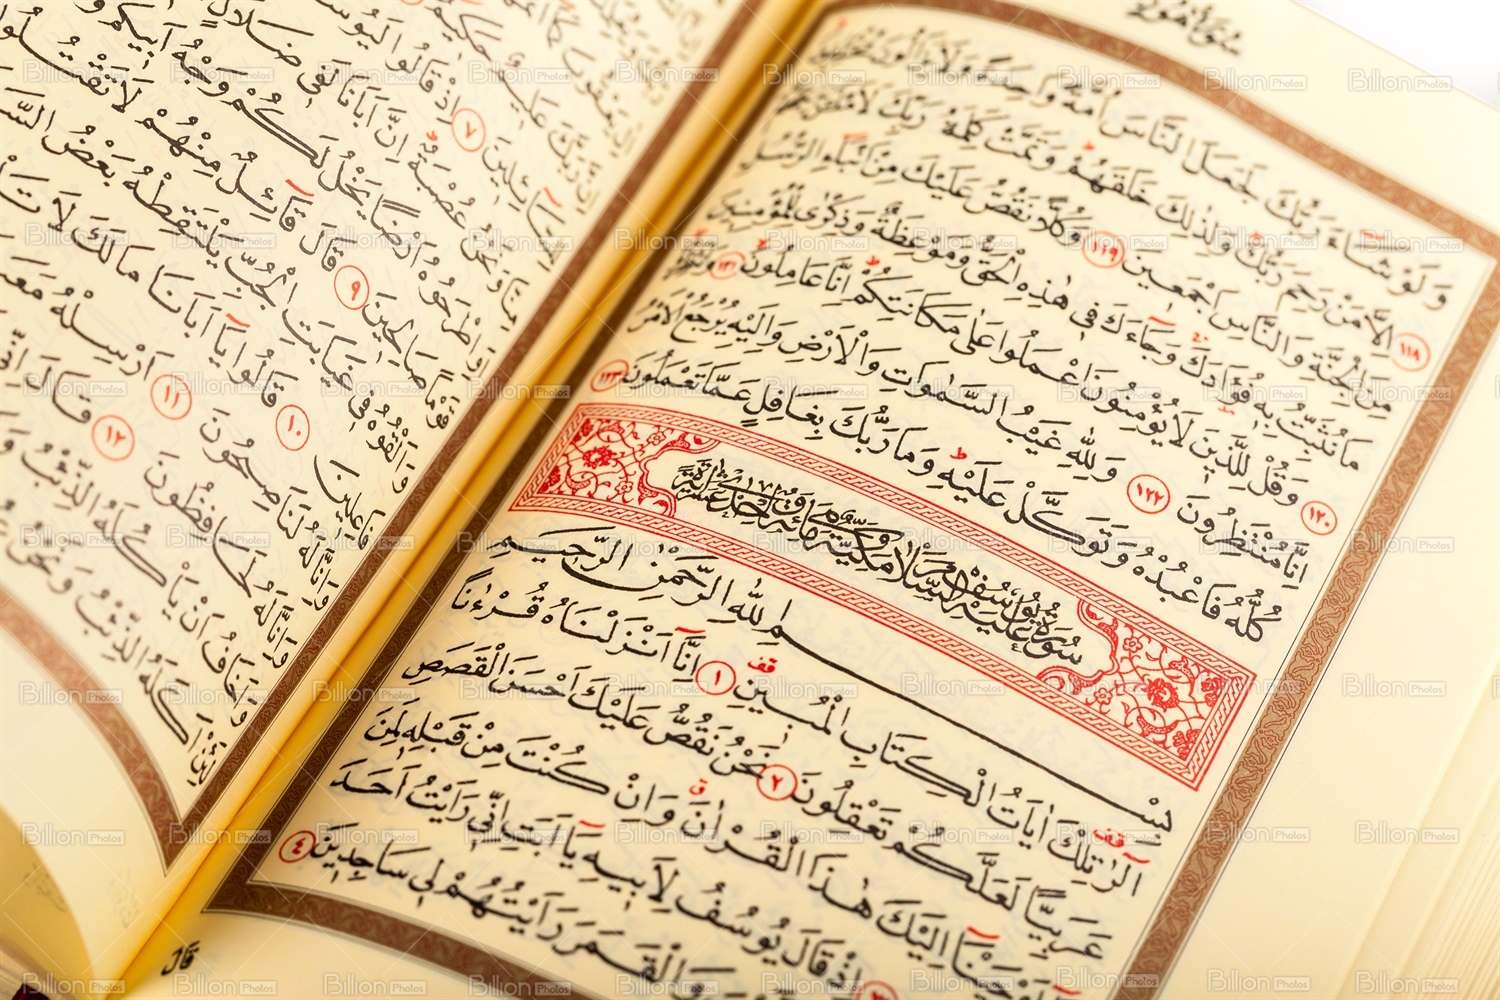 سُورَةُ هُودٍ
وَلَوْ شَاءَ رَبُّكَ لَجَعَلَ النَّاسَ اُمَّةً وَاحِدَةً وَلَا يَزَالُونَ مُخْتَلِفِينَ
﴿١١٨﴾ اِلَّا مَنْ رَحِمَ رَبُّكَ وَلِذٰلِكَ خَلَقَهُمْ وَتَمَّتْ كَلِمَةُ رَبِّكَ لَاَمْلَـَٔنَّ جَهَنَّمَ
مِنَ الْجِنَّةِ وَالنَّاسِ اَجْمَعِينَ ﴿١١٩﴾ وَكُلًّا نَقُصُّ عَلَيْكَ مِنْ اَنْبَاءِ الرُّسُلِ
مَا نُثَبِّتُ بِهِ فُؤٰادَكَ وَجَاءَكَ فِى هٰذِهِ الْحَقُّ وَمَوْعِظَةٌ وَذِكْرٰى لِلْمُؤْمِنِينَ
﴿١٢٠﴾ وَقُلْ لِلَّذِينَ لَا يُؤْمِنُونَ اعْمَلُوا عَلٰى مَكَانَتِكُمْ اِنَّا عَامِلُونَ ﴿١٢١﴾ وَانْتَظِرُوا
اِنَّا مُنْتَظِرُونَ ﴿١٢٢﴾ وَلِلّٰهِ غَيْبُ السَّمٰوَاتِ وَالْاَرْضِ وَاِلَيْهِ يُرْجَعُ الْاَمْرُ
كُلُّهُ فَاعْبُدْهُ وَتَوَكَّلْ عَلَيْهِ وَمَا رَبُّكَ بِغَافِلٍ عَمَّا تَعْمَلُونَ ﴿١٢٣﴾
سُورَةُ يُوسُفَ عَلَيْهِ السَّلَامُ مَكِّيَّةٌ وَهِىَ مِائَةٌ وَاِحْدٰى عَشْرَةَ اٰيَةً
بِسْمِ اللهِ الرَّحْمٰنِ الرَّحِيمِ
الٓرٰ تِلْكَ اٰيَاتُ الْكِتَابِ الْمُبِينِ ﴿١﴾ اِنَّا اَنْزَلْنَاهُ قُرْءٰنًا
عَرَبِيًّا لَعَلَّكُمْ تَعْقِلُونَ ﴿٢﴾ نَحْنُ نَقُصُّ عَلَيْكَ اَحْسَنَ الْقَصَصِ
اَوْحَيْنَا اِلَيْكَ هٰذَا الْقُرْاٰنَ وَاِنْ كُنْتَ مِنْ قَبْلِهِ لَمِنَ
اِذْ قَالَ يُوسُفُ لِاَبِيهِ يَا اَبَتِ اِنِّى رَاَيْتُ اَحَدَ
وَالْقَمَرَ رَاَيْتُهُمْ لِى سَاجِدِينَ ﴿٤﴾
قَالَ
اِنَّ رَبَّكَ عَلِيمٌ حَكِيمٌ
لِلسَّائِلِينَ ﴿٧﴾ اِذْ قَالُوا لَيُوسُفُ
وَنَحْنُ عُصْبَةٌ اِنَّ اَبَانَا لَفِى ضَلَالٍ
اَوِ اطْرَحُوهُ اَرْضًا يَخْلُ لَكُمْ وَجْهُ اَبِيكُمْ
قَوْمًا صَالِحِينَ ﴿٩﴾ قَالَ قَائِلٌ مِنْهُمْ لَا تَقْتُلُوا
وَاَلْقُوهُ فِى غَيَابَتِ الْجُبِّ يَلْتَقِطْهُ بَعْضُ السَّيَّارَةِ
فَاعِلِينَ ﴿١٠﴾ قَالُوا يَا اَبَانَا مَالَكَ لَا تَأْمَنَّا
وَاِنَّا لَهُ لَنَاصِحُونَ ﴿١١﴾ اَرْسِلْهُ مَعَنَا
وَاِنَّا لَهُ لَحَافِظُونَ ﴿١٢﴾ قَالَ اِنِّى
وَاَخَافُ اَنْ يَأْكُلَهُ الذِّئْبُ
اَكَلَهُ الذِّئْبُ وَنَحْنُ
Billion Photos